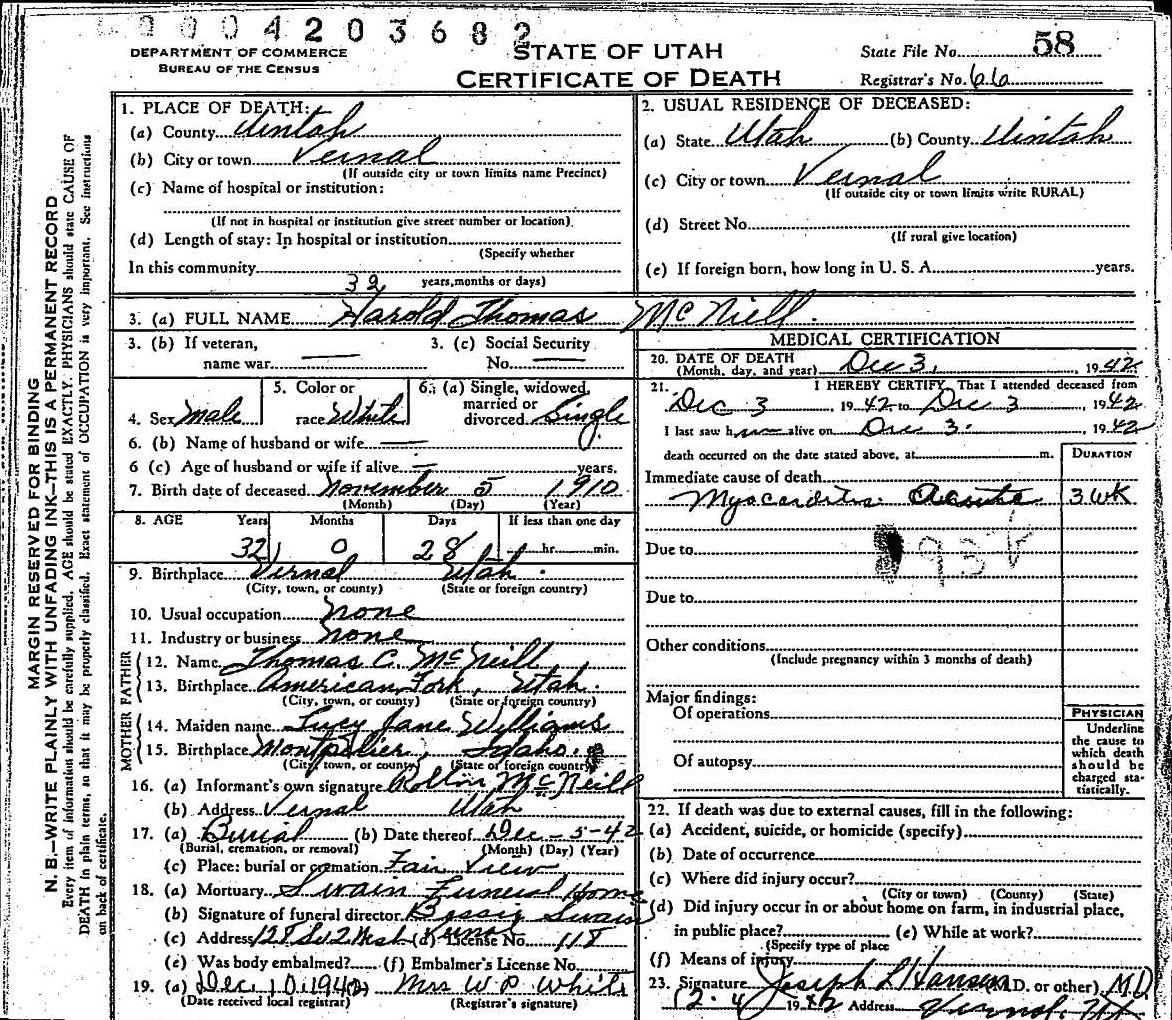 0004203682
DEPARTMENT OF COMMERCE
BUREAU OF THE CENSUS
STATE OF UTAH
CERTIFICATE OF DEATH
State File No. 58
Registrar's No. 66
MARGIN RESERVED FOR BINDING
N. B.—WRITE PLAINLY WITH UNFADING INK—THIS IS A PERMANENT RECORD
Every item of information should be carefully supplied. AGE should be stated EXACTLY. PHYSICIANS should state CAUSE OF
DEATH in plain terms, so that it may be properly classified. Exact statement of OCCUPATION is very important. See instructions
on back of certificate.
1. PLACE OF DEATH:
(a) County Uintah
(b) City or town Vernal
(If outside city or town limits name Precinct)
(c) Name of hospital or institution:
(If not in hospital or institution give street number or location)
(d) Length of stay: In hospital or institution
(Specify whether
In this community 32 years, months or days)
2. USUAL RESIDENCE OF DECEASED:
(a) State Utah (b) County Uintah
(c) City or town Vernal
(If outside city or town limits write RURAL)
(d) Street No.
(If rural give location)
(e) If foreign born, how long in U. S. A. years.
3. (a) FULL NAME Harold Thomas McNiell.
3. (b) If veteran, name war —
3. (c) Social Security No. —
4. Sex Male
5. Color or race White
6. (a) Single, widowed, married or divorced Single
6. (b) Name of husband or wife —
6 (c) Age of husband or wife if alive — years.
7. Birth date of deceased November 5 1910
(Month) (Day) (Year)
8. AGE Years Months Days If less than one day
32 0 28 hr. min.
9. Birthplace Vernal Utah.
(City, town, or county) (State or foreign country)
10. Usual occupation None
11. Industry or business None
FATHER
12. Name Thomas C. McNeill
13. Birthplace American Fork, Utah.
(City, town, or county) (State or foreign country)
MOTHER
14. Maiden name Lucy Jane Williams
15. Birthplace Montpelier, Idaho.
(City, town, or county) (State or foreign country)
16. (a) Informant's own signature Rollin McNeill
(b) Address Vernal Utah
17. (a) Burial (b) Date thereof Dec - 5-42
(Burial, cremation, or removal) (Month) (Day) (Year)
(c) Place: burial or cremation Fair View
18. (a) Mortuary Swain Funeral Home
(b) Signature of funeral director Bessie Swain
(c) Address 128 So 2 West Vernal (d) License No. 118
(e) Was body embalmed? (f) Embalmer's License No.
19. (a) Dec. 10, 1942 Mrs W P White
(Date received local registrar) (Registrar's signature)
MEDICAL CERTIFICATION
20. DATE OF DEATH
(Month, day, and year) Dec 3, 1942
21. I HEREBY CERTIFY, That I attended deceased from
Dec 3, 1942 to Dec 3, 1942
I last saw him alive on Dec 3. 1942
death occurred on the date stated above, at m.
DURATION
Immediate cause of death
Myocarditis Acute 3 wk
Due to
Due to
Other conditions
(Include pregnancy within 3 months of death)
Major findings:
Of operations
Of autopsy
PHYSICIAN
Underline
the cause to
which death
should be
charged sta-
tistically.
22. If death was due to external causes, fill in the following:
(a) Accident, suicide, or homicide (specify)
(b) Date of occurrence
(c) Where did injury occur?
(City or town) (County) (State)
(d) Did injury occur in or about home on farm, in industrial place,
in public place? (e) While at work?
(Specify type of place
(f) Means of injury
23. Signature Joseph L Hansen (M.D. or other) M.D.
12-4 1942 Address Vernal, Ut